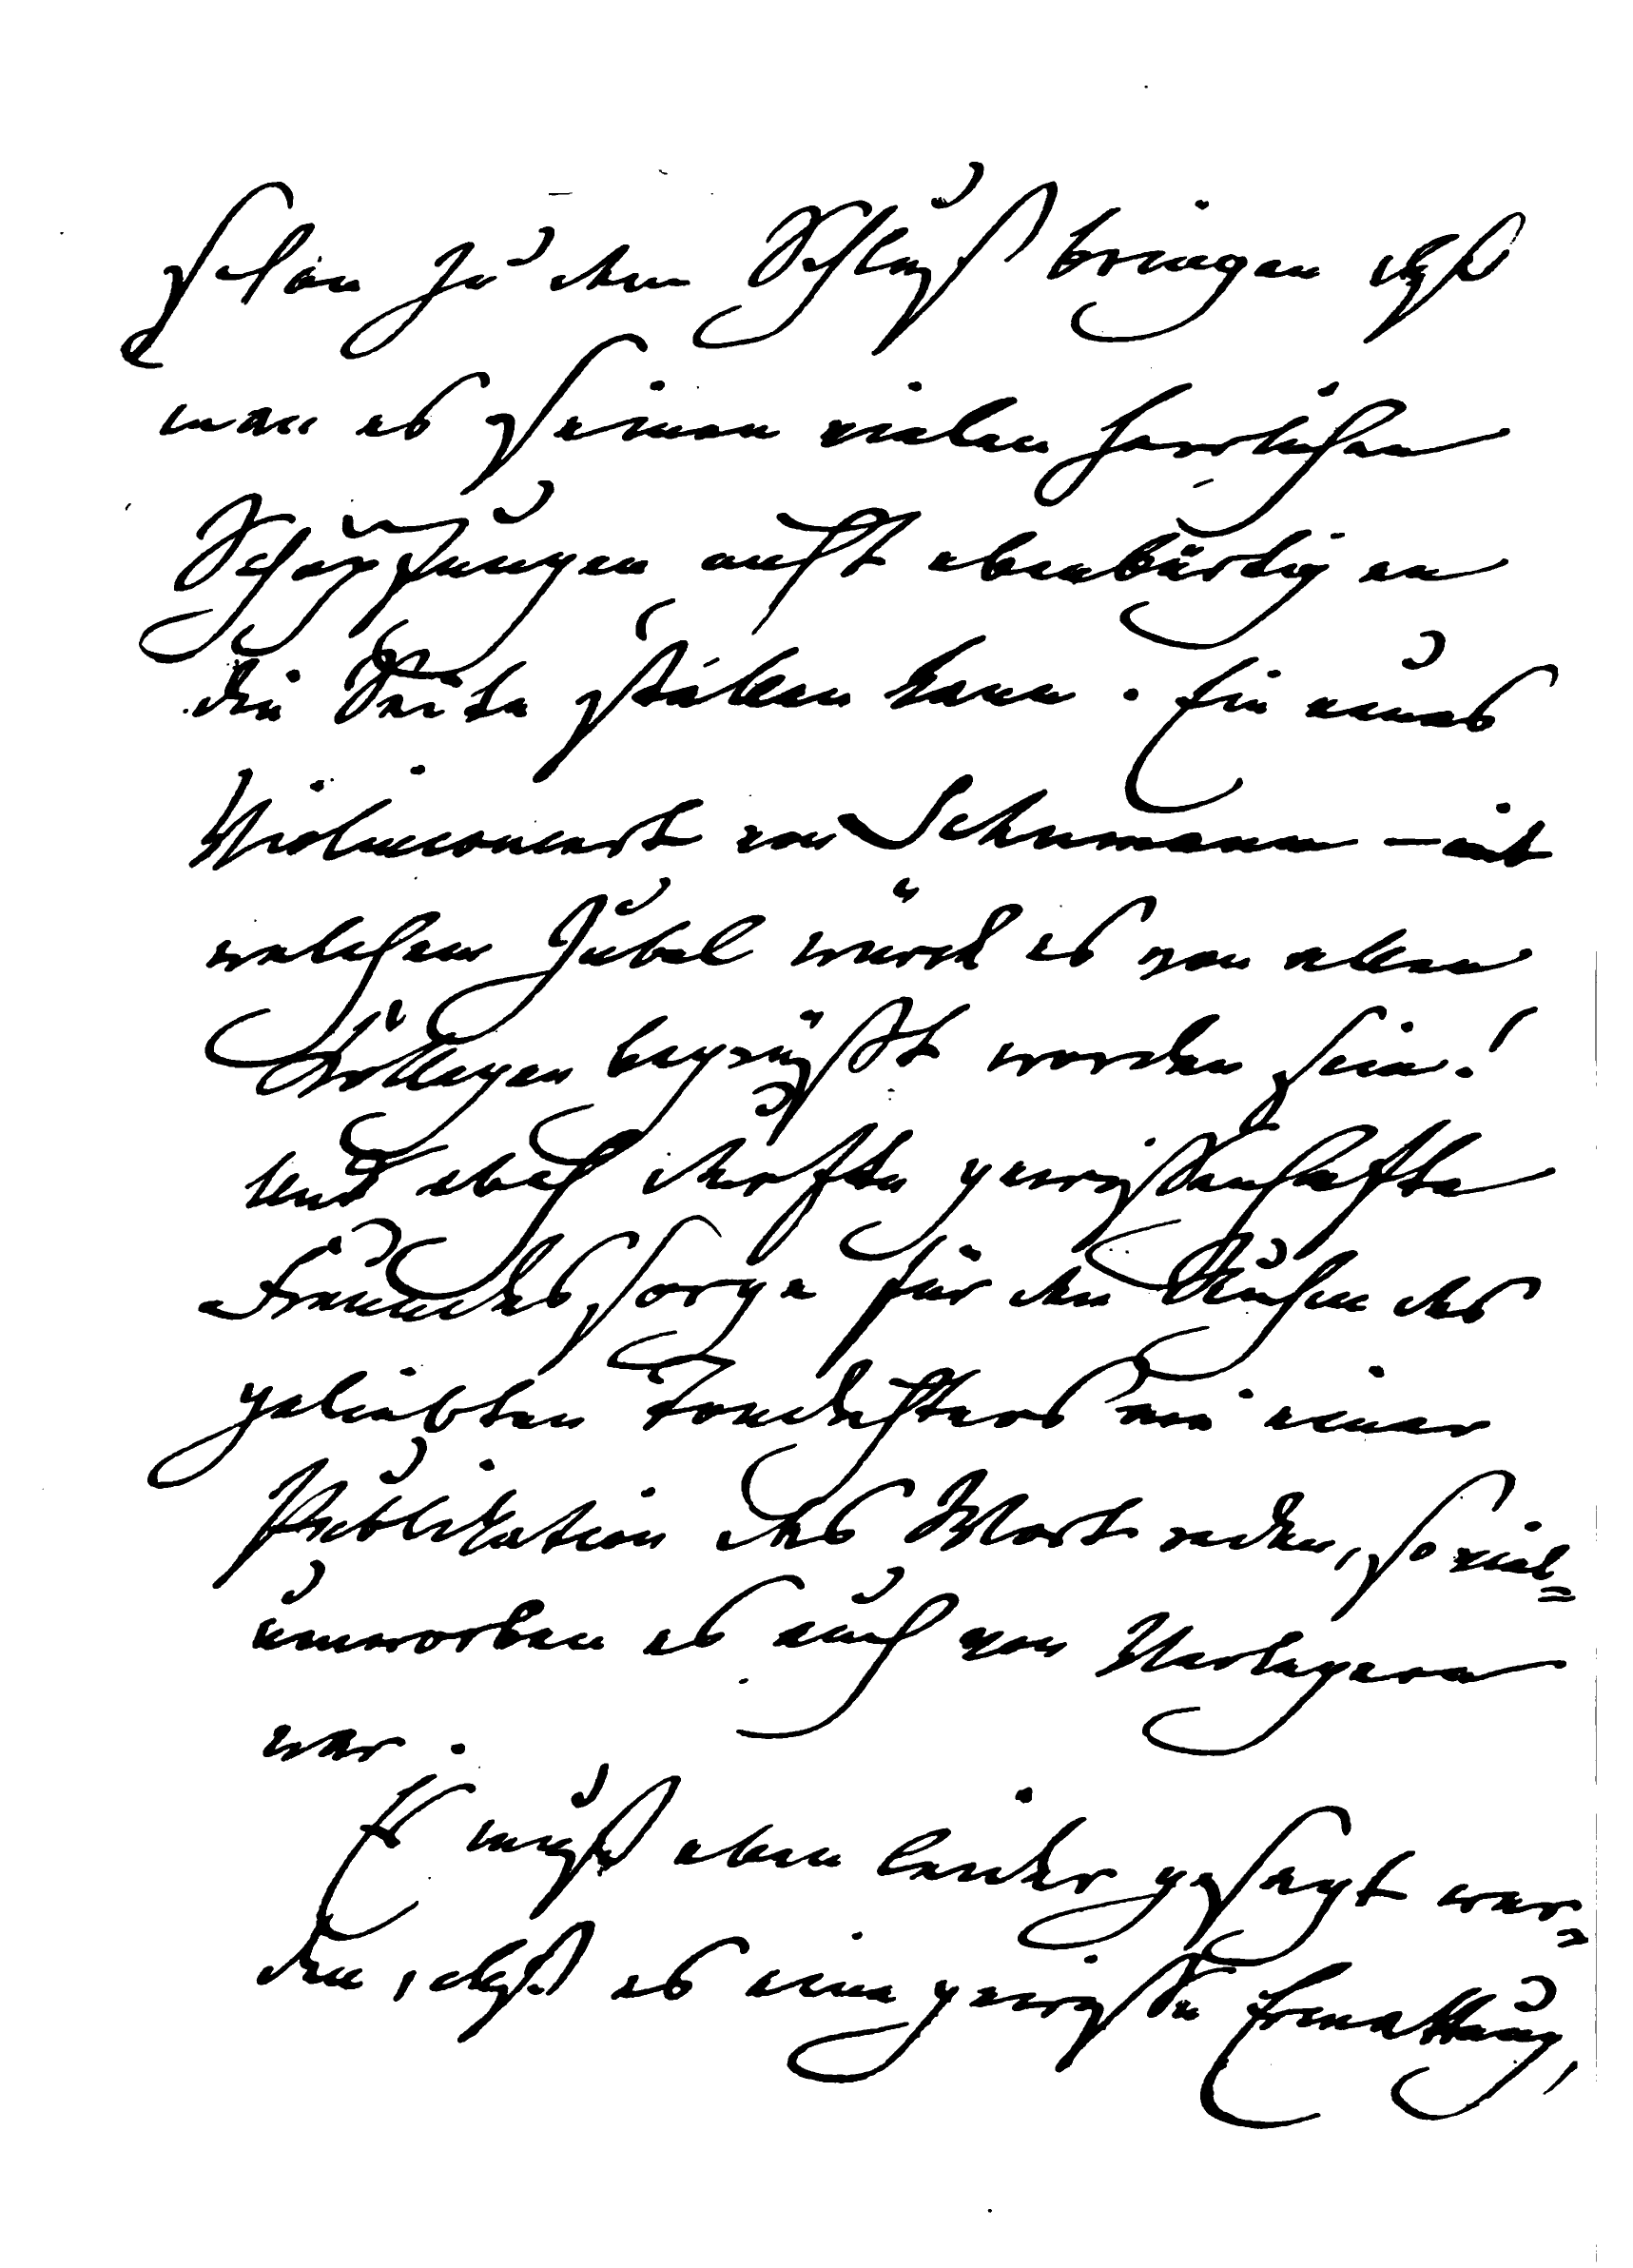 schon zu dem Schluß bringen daß
man es seinen vielen herrlichen
Schöpfungen nicht ebenbürtig an
die Seite stellen kann. Ein neues
Violinconcert von Schumann – mit
welchem Jubel würd es von allen
Kollegen begrüßt worden sein!
Und doch durfte gewissenhafte
Freundessorge für den Ruhm des
geliebten Tondichters nie einer
Publikation das Wort reden, so viel=
umworben es auch von Verlegern
war.
Es muß eben leider gesagt wer=
den, daß es eine gewisse Ermattung,